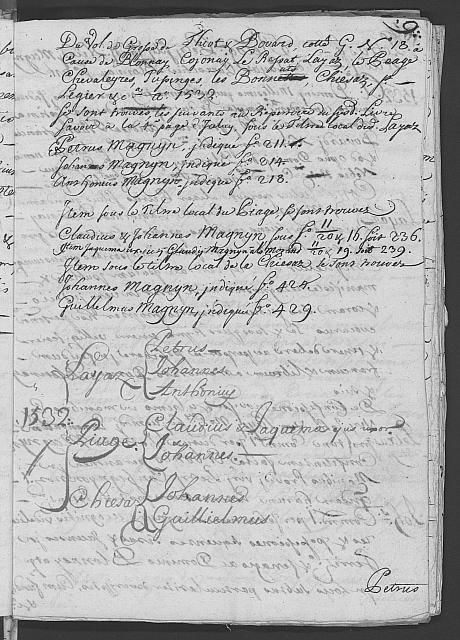 9.
Du Vol. de Grossard Thiot & Bovard cotté G. N.º 18. à
Cause de Blonay, Cojonay, le Ressat, Layaz, le Prage
Chevaleyres, Tusinges, les Bonnets Chiesaz, St.
Legier &c. aº 1532.
se sont trouvés les suivants au Répertoire du susd. Livre
Savoir à la 1.e page d'Iceluy, sous le Tiltre local de Layaz
Petrus Magnyn, indique fº. 211.
Johannes Magnyn, indique fº. 214.
Anthonius Magnyn, indique fº. 218.
Item sous le Tiltre local du Piage, se sont trouvez
Claudius & Johannes Magnyn sous fº. 11 20 & 16. soit 236.
Item Jaquema uxor Claudij Magnyn al. 11 20 & 19. soit 239.
Item sous le tiltre local de la Chiesaz, se sont trouvés
Johannes Magnyn, indique fº. 424.
Guillelmus Magnyn, indique fº. 429.
Layaz Petrus
Johannes
Anthonius
1532.
Piage. Claudius & Jaquema ejus uxor
Johannes.
Chiesaz Johannes
Guillielmus
Petrus